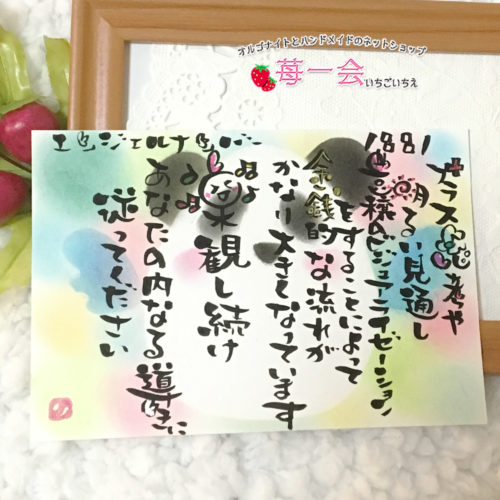 オルゴナイトとハンドメイドのネットショップ
苺一会 いちごいちえ
エンジェルナンバー
1881
プラス思考や
明るい見通し
豊穣のビジュアライゼーション
をすることによって
金銭的な流れが
かなり大きくなっています
楽観し続け
あなたの内なる導きに
従ってください